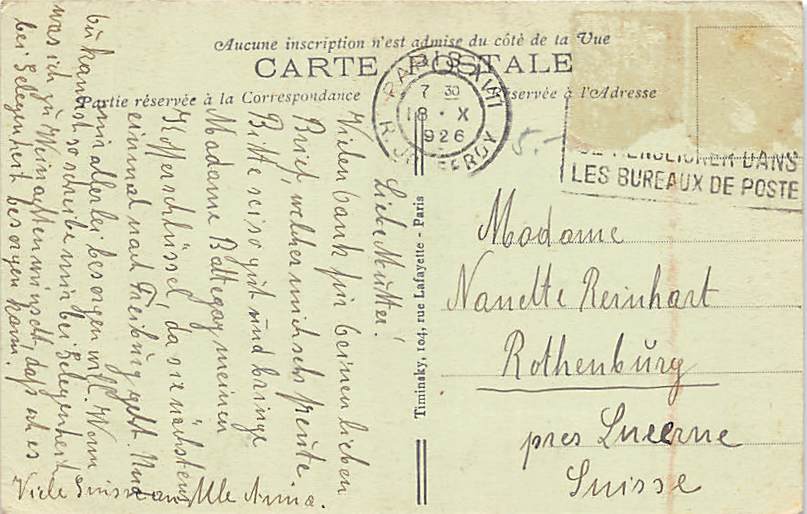 Aucune inscription n'est admise du côté de la Vue
CARTE POSTALE
Partie réservée à la Correspondance
servée à l'Adresse
PARIS XVII
7 30
18 · X
926
R. JOUFFROY
5.-
DANS
LES BUREAUX DE POSTE
Timinsky, 104, rue Lafayette - Paris
Liebe Mutter!
Vielen Dank für deinen lieben
Brief, welcher mich sehr freute
Bitte sei so gut und bringe
Madame Battegay meinen
Kofferschlüssel, da sie nächstens
einmal nach Freiburg geht. Und
mir allerlei besorgen will. Wenn
du kannst so schreibe mir bei Gelegenheit
was ich zu Weinachten wünscht, daß ich es
bei Gelegenheit besorgen kann.
Viele Grüsse an Alle Anna.
Madame
Nanette Reinhart
Rothenburg
pres Lucerne
Suisse